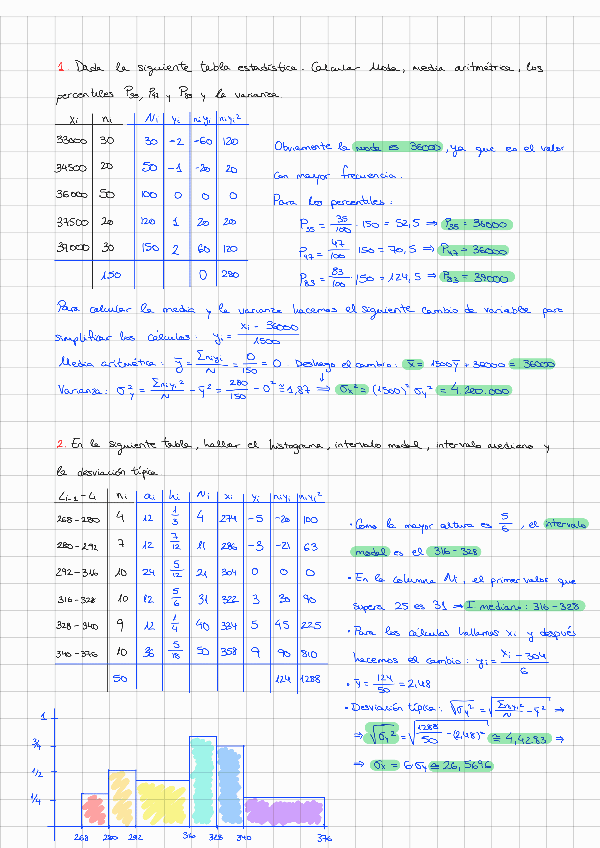 1. Dada la siguiente tabla estadística. Calcular Moda, media aritmética, los
percentiles P₃₅, P₄₇ y P₈₃ y la varianza.
xi ni Ni yi niyi niyi²
33000 30 30 -2 -60 120
34500 20 50 -1 -20 20
36000 50 100 0 0 0
37500 20 120 1 20 20
39000 30 150 2 60 120
150 0 280
Obviamente la moda es 36000, ya que es el valor
con mayor frecuencia.
Para los percentiles:
P₃₅ = 35/100 · 150 = 52,5 ⇒ P₃₅ = 36000
P₄₇ = 47/100 · 150 = 70,5 ⇒ P₄₇ = 36000
P₈₃ = 83/100 · 150 = 124,5 ⇒ P₈₃ = 39000
Para calcular la media y la varianza hacemos el siguiente cambio de variable para
simplificar los cálculos: yi = xi - 36000 / 1500
Media aritmética: ȳ = Σniyi/N = 0/150 = 0 Deshago el cambio: x̄ = 1500ȳ + 36000 = 36000
Varianza: σy² = Σniyi²/N - ȳ² = 280/150 - 0² ≅ 1,87 ⇒ σx² = (1500)² σy² = 4.200.000
2. En la siguiente tabla, hallar el histograma, intervalo modal, intervalo mediano y
la desviación típica
Li-1 - Li ni ai hi Ni xi yi niyi niyi²
268-280 4 12 1/3 4 274 -5 -20 100
280-292 7 12 7/12 11 286 -3 -21 63
292-316 10 24 5/12 21 304 0 0 0
316-328 10 12 5/6 31 322 3 30 90
328-340 9 12 1/4 40 334 5 45 225
340-376 10 36 5/18 50 358 9 90 810
50 124 1288
· Como la mayor altura es 5/6, el intervalo
modal es el 316-328
· En la columna Ni, el primer valor que
supera 25 es 31 ⇒ I mediano: 316-328
· Para los cálculos hallamos xi y después
hacemos el cambio: yi = xi - 304 / 6
· ȳ = 124/50 = 2,48
· Desviación típica: √σy² = √(Σniyi²/N - ȳ²) ⇒
⇒ √σy² = √(1288/50 - (2,48)²) ≅ 4,4283 ⇒
⇒ σx = 6σy ≅ 26,5696
1
3/4
1/2
1/4
268 280 292 316 328 340 376